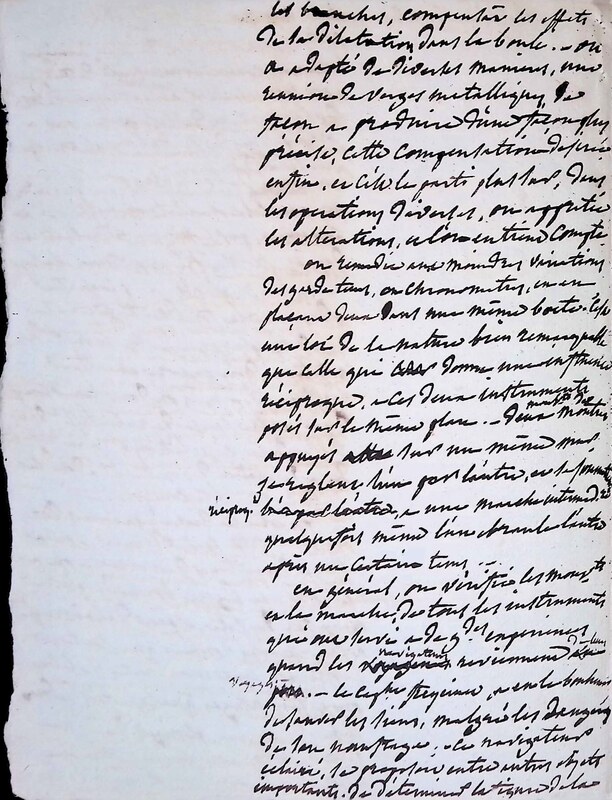 les branches, compenser les effets
de la dilatation dans la boule. - on
a adapté de diverses manieres, une
reunion de verges metalliques, de
façon a produire d'une façon plus
précise, cette compensation desirée
enfin, et c'est le parti plus sur, dans
les operations diverses, on apprécie
les alterations, et l'on en tient compte
on remedie aux moindres variations
des garde tems, ou chronometres, en en
plaçant deux dans une même boete. C'est
une loi de la nature bien remarquable
que celle qui donne une influence
réciproque, a ces deux instruments
posés sur le même plan. - deux montres
appuyés sur un même mur
se reglent l'un par l'autre, et se
réciproq a une marche intermedre
quelquefois même l'un ebranle l'autre
après un certain tems. -
en général, on vérifie les mouvts
et la marche, de tous les instruments
qui ont servi a de gdes experiences
quand les navigateurs reviennent de leurs
voyages. - le a eu le bonheur
de sauver les siens, malgré les dangers
de son naufrage. - Ce navigateur
éclairé, se proposoit entre autres objets
importants, de déterminer la figure de la